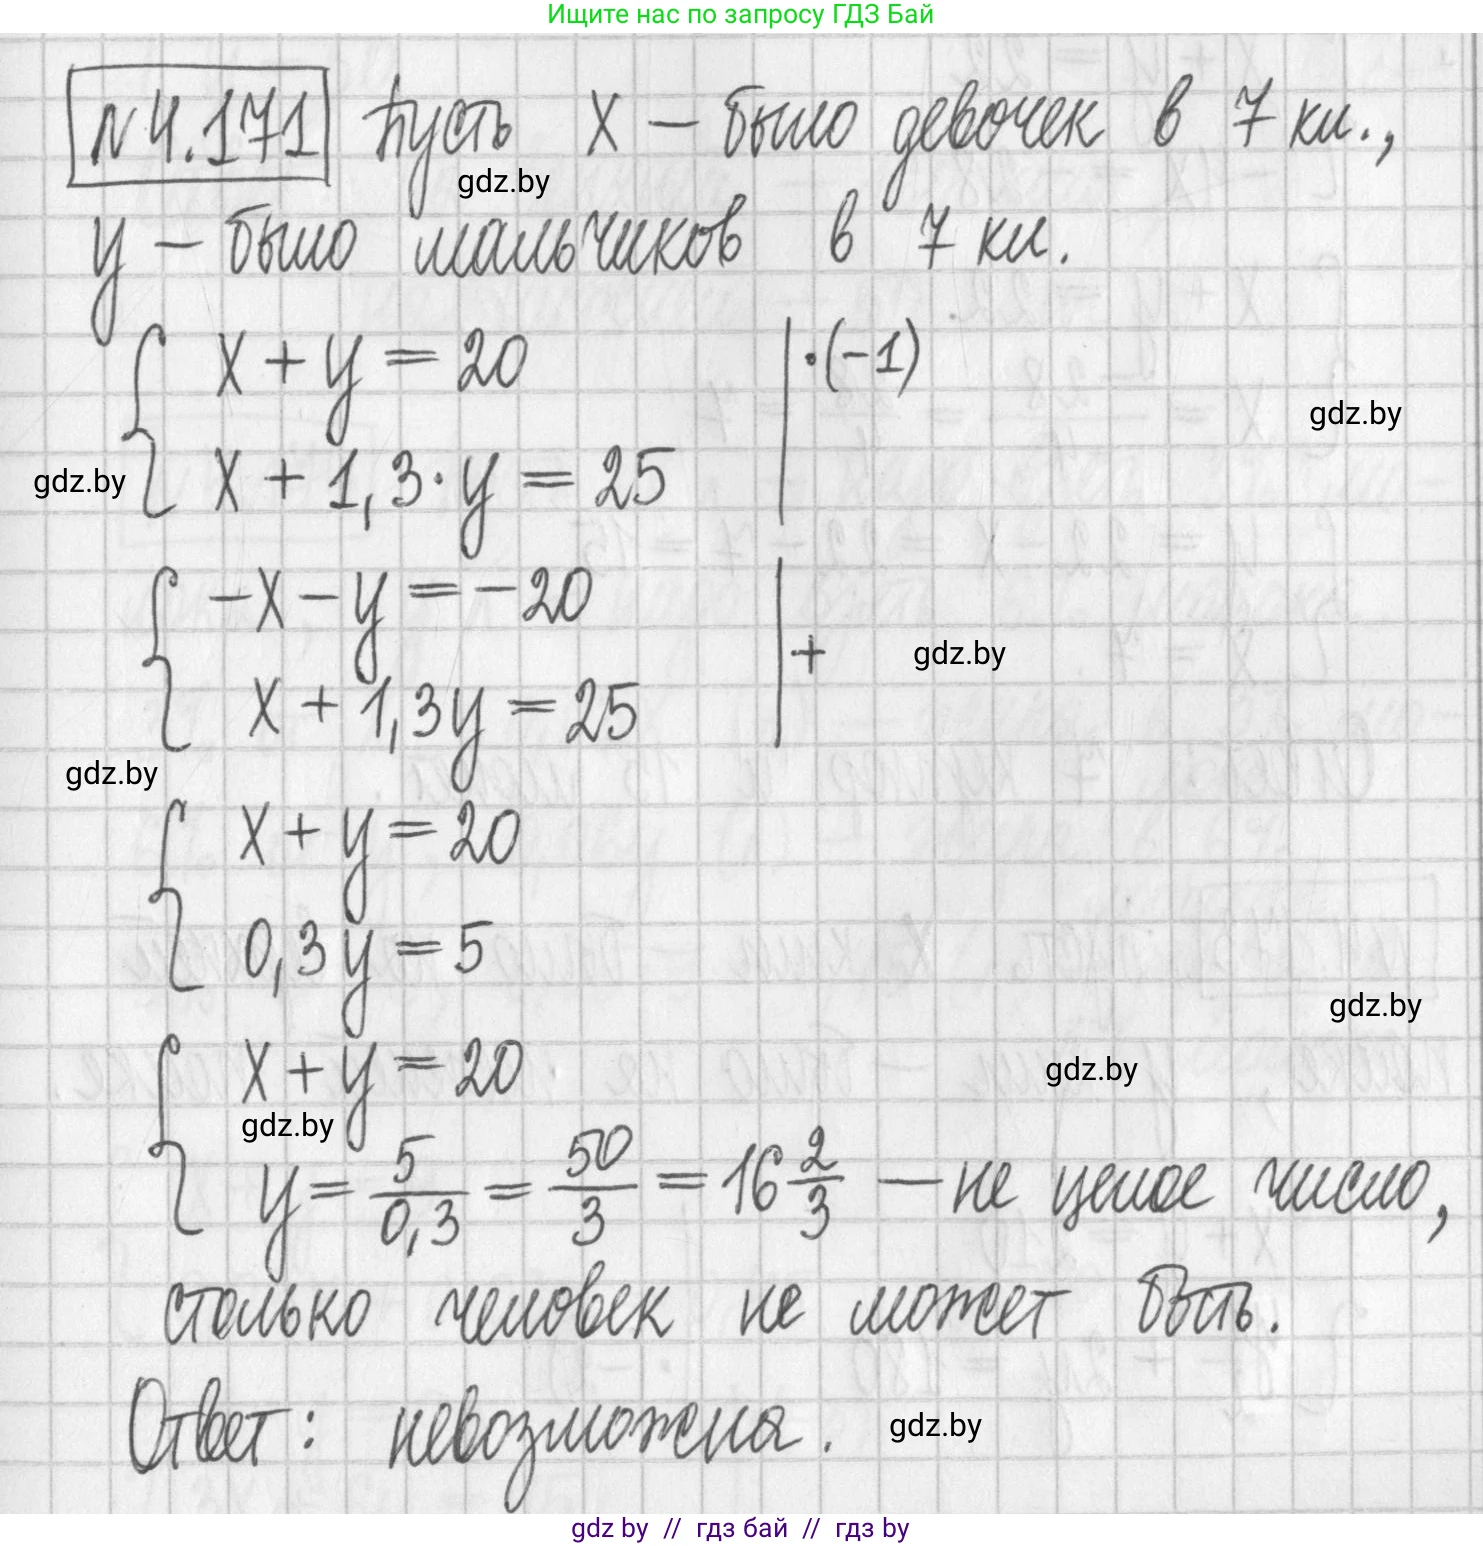 Ищите нас по запросу ГДЗ Бай
N 4.171 Пусть x – было девочек в 7 кл.,
gdz.by
y – было мальчиков в 7 кл.
x + y = 20 | ·(-1)
gdz.by
x + 1,3·y = 25
gdz.by
-x - y = -20
+
gdz.by
x + 1,3y = 25
gdz.by
x + y = 20
0,3y = 5
gdz.by
x + y = 20
gdz.by
gdz.by
y = 5/0,3 = 50/3 = 16 2/3 – не целое число,
столько человек не может быть.
Ответ: невозможна.
gdz.by
gdz by // гдз бай // гдз by